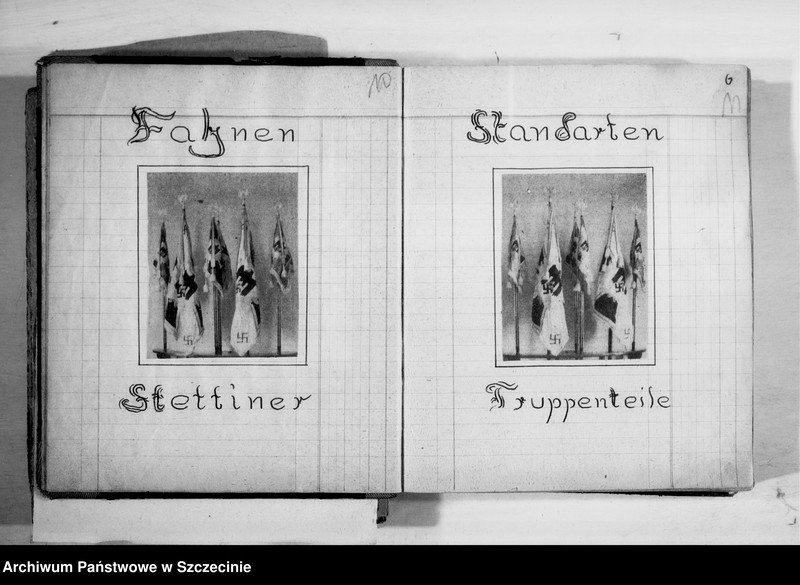 10
Fahnen
Stettiner
6
11
Standarten
Truppenteile
Archiwum Państwowe w Szczecinie